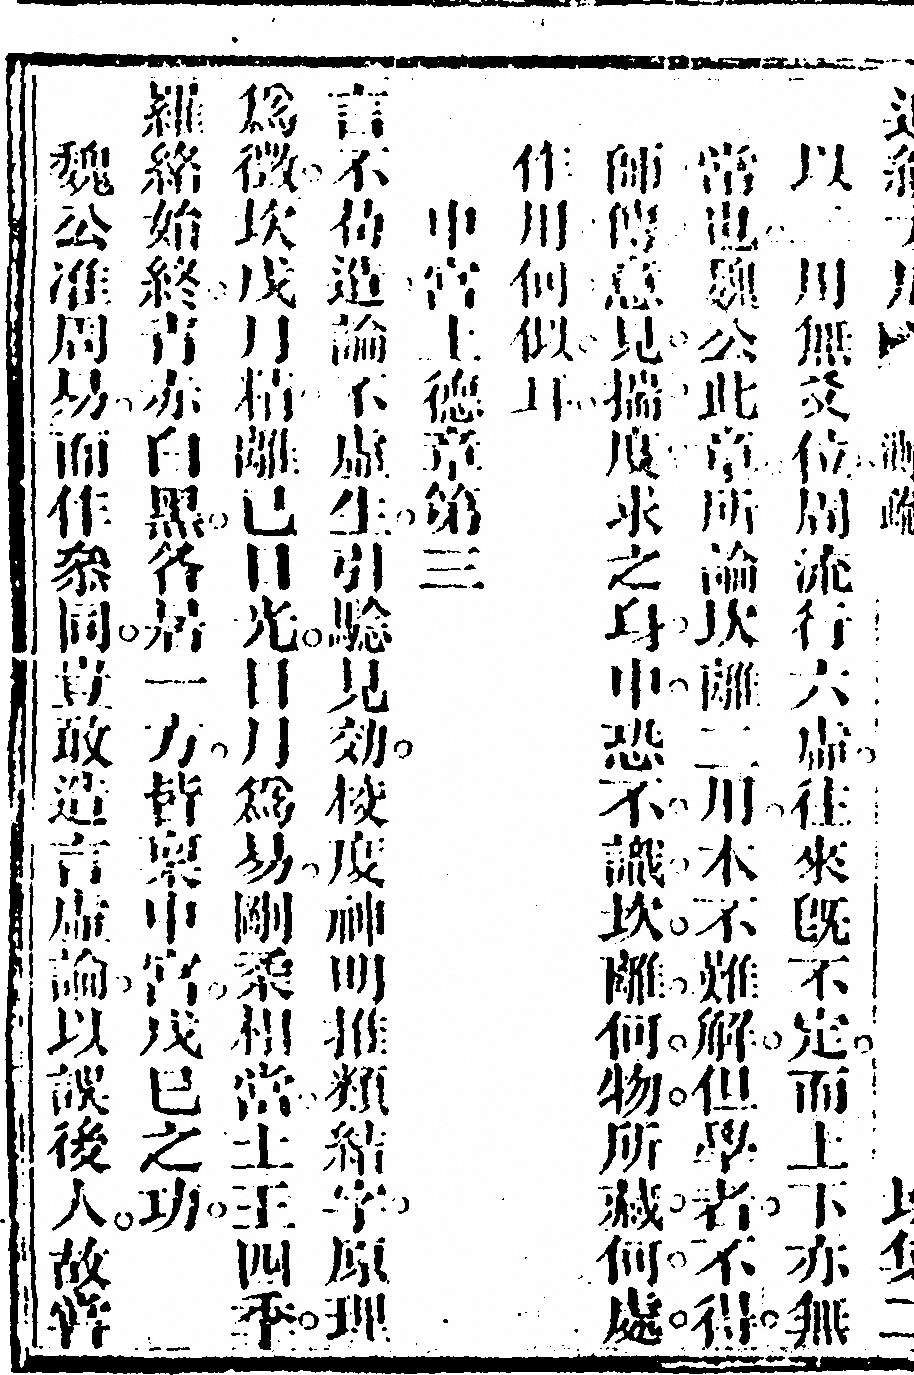 以二用無爻位周流行六虛往來既不定而上下亦無
常也魏公此章所論坎離二用本不難解但學者不得
師傳意見揣度求之身中恐不識坎離何物所藏何處
作用何似耳
中宮土德章第三
言不苟造論不虛生引驗見効校度神明推類結字原理
爲徵坎戊月精離己日光日月爲易剛柔相當土王四季
羅絡始終青赤白黑各居一方皆稟中宮戊己之功
魏公准周易而作參同豈敢造言虛論以誤後人故嘗